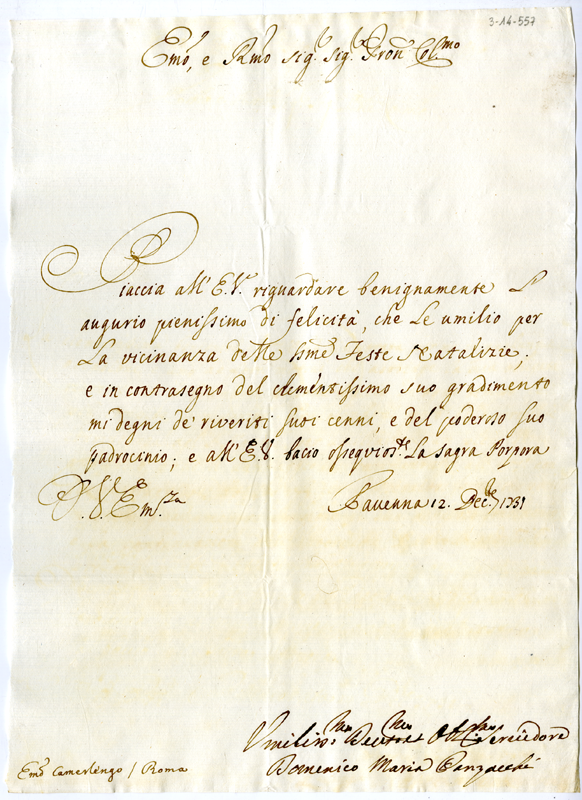 3-14-557
Emo, e Rmo Sig.r Sig.r Pron Colmo
Piaccia all' E.V. riguardare benignamente L'
augurio pienissimo di felicità, che Le umilio per
La vicinanza delle Ssme Feste Natalizie;
e in contrasegno del clementissimo suo gradimento
mi degni de' riveriti suoi cenni, e del poderoso suo
padrocinio; e all' E.V. bacio ossequioste La Sagra Porpora
D. V. Em.za
Ravenna 12. Decbre 1731
Umilmo Devmo Obblmo Servidore
Domenico Maria Panzacchi
Emo Camerlengo / Roma